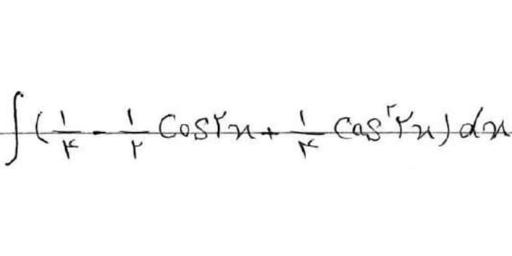 ∫(۱/۴ - ۱/۲ Cos۲x + ۱/۴ Cos^۲ ۲x) dx